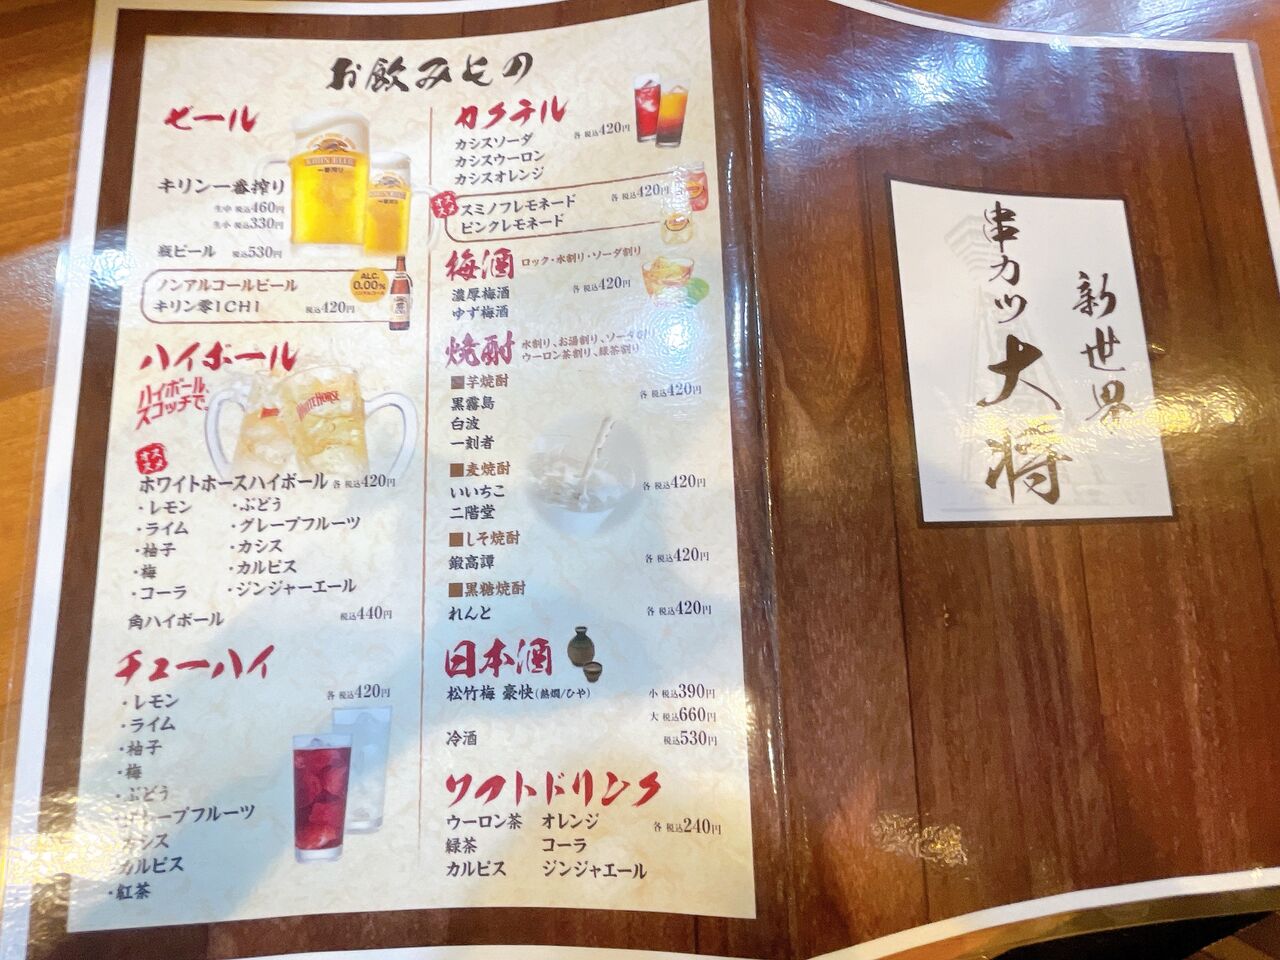 お飲みもの
ビール
キリン一番搾り
生中 税込460円
生小 税込330円
瓶ビール 税込530円
ノンアルコールビール
キリン零ICHI 税込420円
ALC.
0.00%
ノンアルコール
KIRIN BEER
一番搾り
ハイボール
ハイボール、
スコッチで。
WHITE HORSE
オススメ
ホワイトホースハイボール 各 税込420円
・レモン ・ぶどう
・ライム ・グレープフルーツ
・柚子 ・カシス
・梅 ・カルピス
・コーラ ・ジンジャーエール
角ハイボール 税込440円
チューハイ
各 税込420円
・レモン
・ライム
・柚子
・梅
・ぶどう
グレープフルーツ
カシス
カルピス
・紅茶
カクテル
各 税込420円
カシスソーダ
カシスウーロン
カシスオレンジ
オススメ
スミノフレモネード 各 税込420円
ピンクレモネード
梅酒 ロック・水割り・ソーダ割り
濃厚梅酒 各 税込420円
ゆず梅酒
焼酎 水割り、お湯割り、ソーダ割り
ウーロン茶割り、緑茶割り
■芋焼酎
各 税込420円
黒霧島
白波
一刻者
■麦焼酎
いいちこ 各 税込420円
二階堂
■しそ焼酎
鍛高譚 各 税込420円
■黒糖焼酎
れんと 各 税込420円
日本酒
松竹梅 豪快(熱燗/ひや) 小 税込390円
大 税込660円
冷酒 税込530円
ソフトドリンク
ウーロン茶 オレンジ 各 税込240円
緑茶 コーラ
カルピス ジンジャエール
新世界
串カツ大将